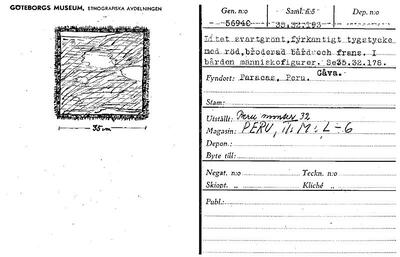 GÖTEBORGS MUSEUM, ETNOGRAFISKA AVDELNINGEN
35 cm
Gen. n:o
Saml. n:o
Dep. n:o
56940
35.32.193
Litet svartgrönt, fyrkantigt tygstycke
med röd, broderad bård och frans. I
bården människofigurer. Se 35.32.178.
Gåva.
Fyndort: Paracas, Peru.
Stam:
Utställt: Peru monter 32
Magasin: PERU, II: M: L-6
Depon.:
Byte till:
Negat. n:o
Teckn. n:o
Skiopt. „
Kliché „
Publ.: